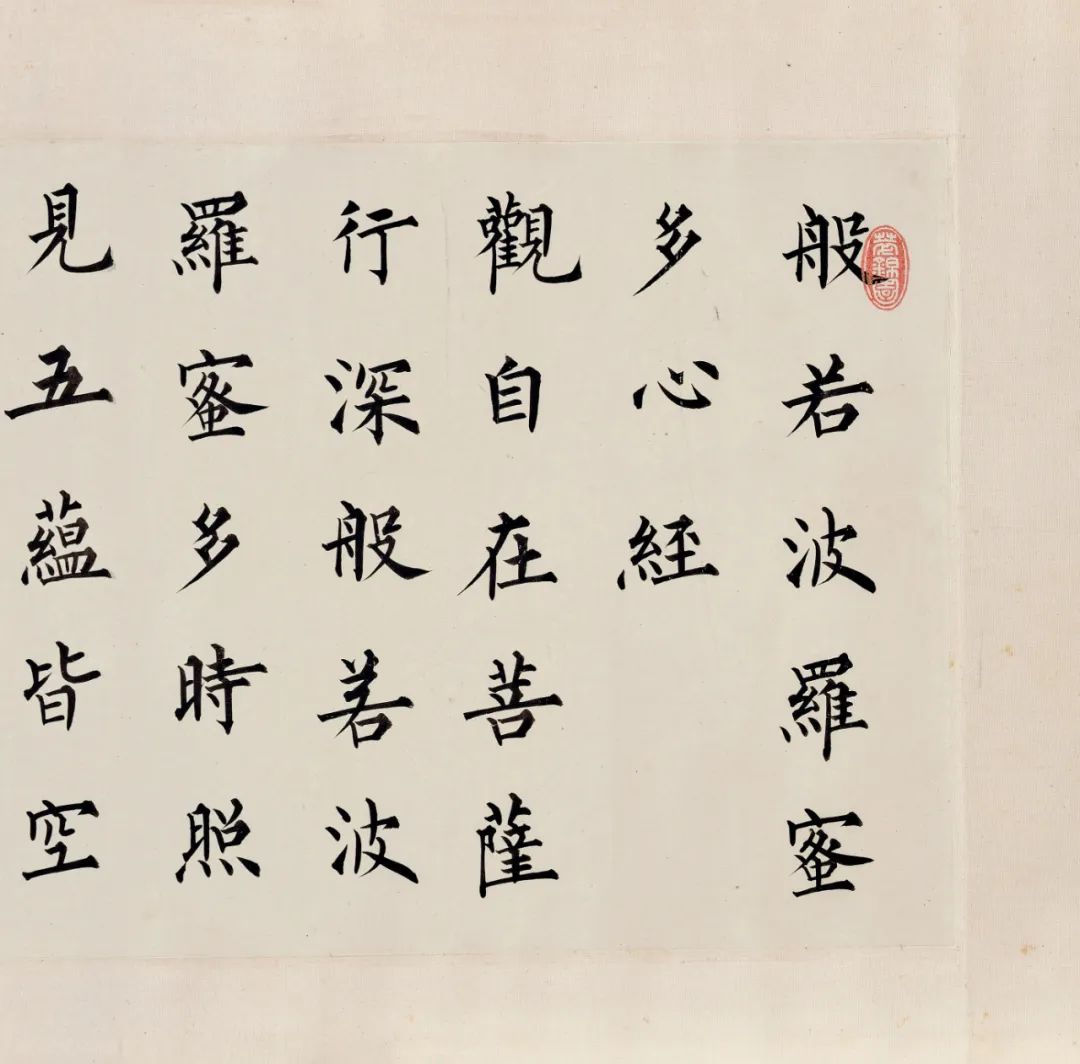 般若波羅蜜
多心経
觀自在菩薩
行深般若波
羅蜜多時照
見五蘊皆空